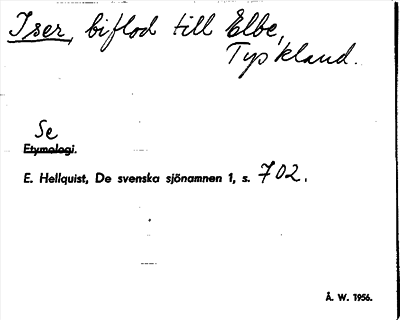 Iser, biflod till Elbe,
Tyskland.
Se
Etymologi.
E. Hellquist, De svenska sjönamnen 1, s. 702.
Å. W. 1956.